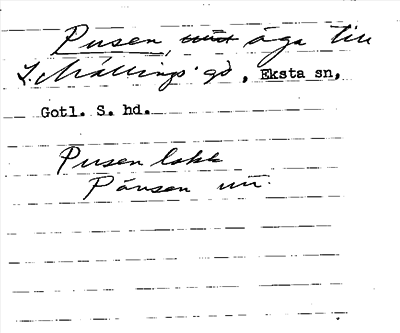 Pusen, äga till
L. Mällings gd, Eksta sn,
Gotl. S. hd.
Pusen lokk
Påusen un.